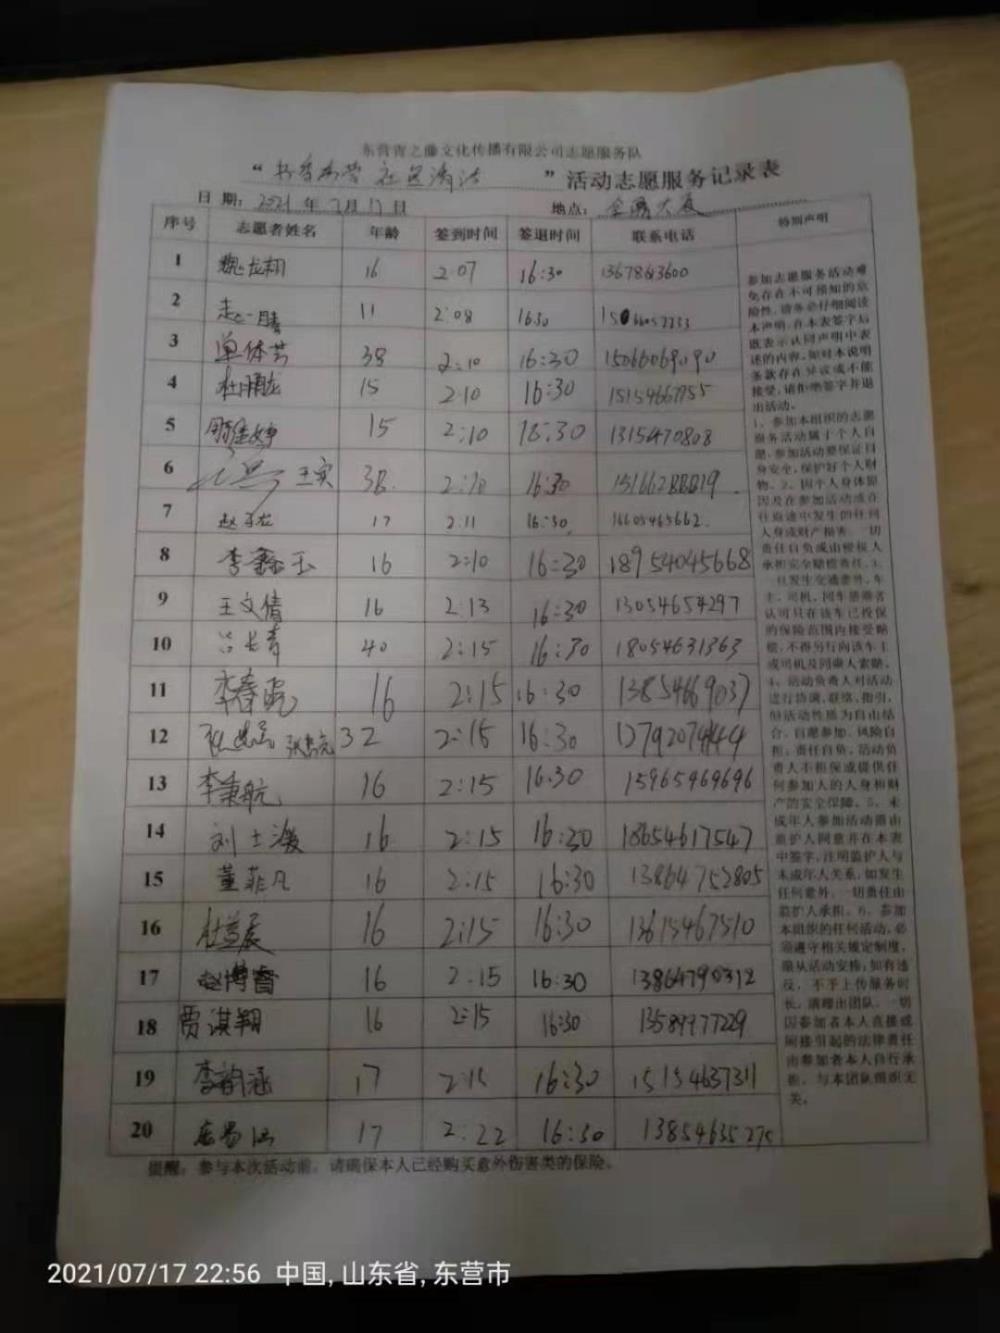 东营青之藤文化传播有限公司志愿服务队
“书香东营 社区清洁”活动志愿服务记录表
日期：2021年7月17日 地点：大厦
序号 志愿者姓名 年龄 签到时间 签退时间 联系电话 特别声明
1 魏龙翔 16 2:07 16:30
2 赵一腾 11 2:08 1630
3 单体芸 38 2:10 16:30 15066069090
4 杜鹏龙 15 2:10 16:30 15154667755
5 15 2:10 16:30 1315470808
6 王实 38 2:10 16:30
7 赵子龙 17 2:11 16:30 16605465662
8 李鑫玉 16 2:10 16:30 18954045668
9 王文倩 16 2:13 16:30 13054654297
10 吕长青 40 2:15 16:30 18054631363
11 李春晓 16 2:15 16:30 13854669037
12 32 2:15 16:30
13 李秉航 16 2:15 16:30 15965969696
14 刘士源 16 2:15 16:30 18654617547
15 董菲凡 16 2:15 16:30 13864752805
16 杜益辰 16 2:15 16:30 13615467510
17 赵博睿 16 2:15 16:30 13864790312
18 贾淇翔 16 2:15 16:30 13589977229
19 李韵涵 17 2:15 16:30 15154637311
20 17 2:22 16:30 13854635275
参加志愿服务活动难
免存在不可预知的危
险性，请务必仔细阅读
本声明，在本表签字后
既表示认同声明中表
述的内容，如对本说明
条款存在异议或不能
接受，请拒绝签字并退
出活动。
1、参加本组织的志愿
服务活动属于个人自
愿，参加活动要保证自
身安全，保护好个人财
物。2、因个人身体原
因及在参加活动或在
往返途中发生的任何
人身或财产损害，一切
责任自负或由侵权人
承担完全赔偿责任。3、
一旦发生交通意外，车
主、司机、同车搭乘者
认可只在该车已投保
的保险范围内接受赔
偿，不得另行向该车主
或司机及同乘人索赔。
4、活动负责人对活动
进行协调，联络，指引，
但活动性质为自由结
合，自愿参加，风险自
担，责任自负，活动负
责人不担保或提供任
何参加人的人身和财
产的安全保障。5、未
成年人参加活动需由
监护人同意并在本表
中签字，注明监护人与
未成年人关系，如发生
任何意外，一切责任由
监护人承担。6、参加
本组织的任何活动，必
须遵守相关规定制度，
服从活动安排；如有违
反，不予上传服务时
长，清理出团队。一切
因参加者本人直接或
间接引起的法律责任
由参加者本人自行承
担，与本团队组织无
关。
提醒：参与本次活动前，请确保本人已经购买意外伤害类的保险。
2021/07/17 22:56 中国, 山东省, 东营市